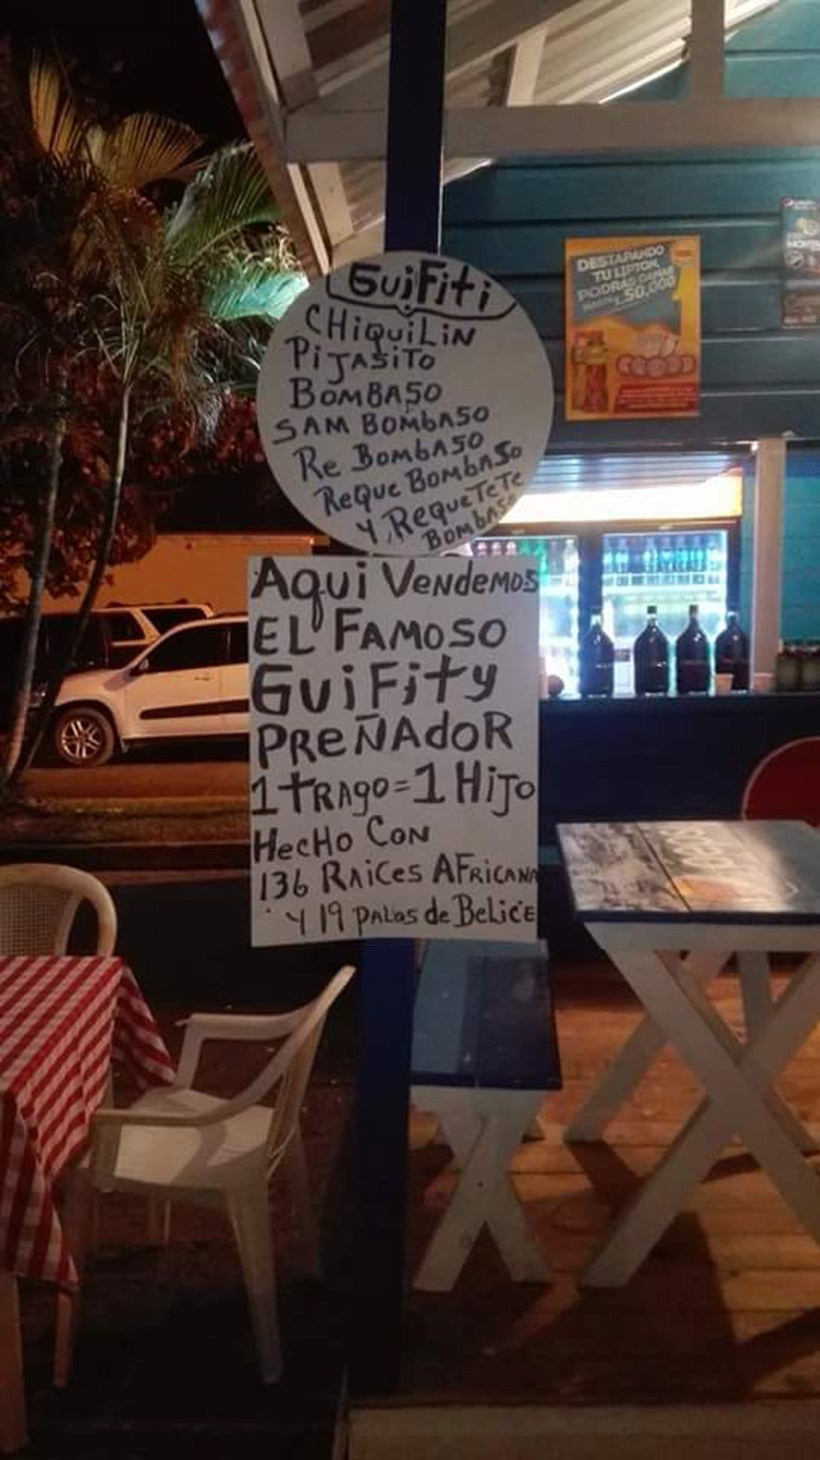 GuiFiti
CHiQuiLiN
PiJASiTO
BOMBASO
SAM BOMBASO
Re BOMBASO
ReQue BOMBASO
Y ReQueTeTe
BOMBASO
AQui VeNDeMOS
EL FAMOSO
GuiFity
PReÑAdOR
1 tRAgO = 1 HiJO
HecHO CON
136 RAiCes AFRiCANA
Y 19 PALOS de BeLiCE
DESTAPANDO
TU LIPTON,
PODRAS GANAR
HASTA L.50,000